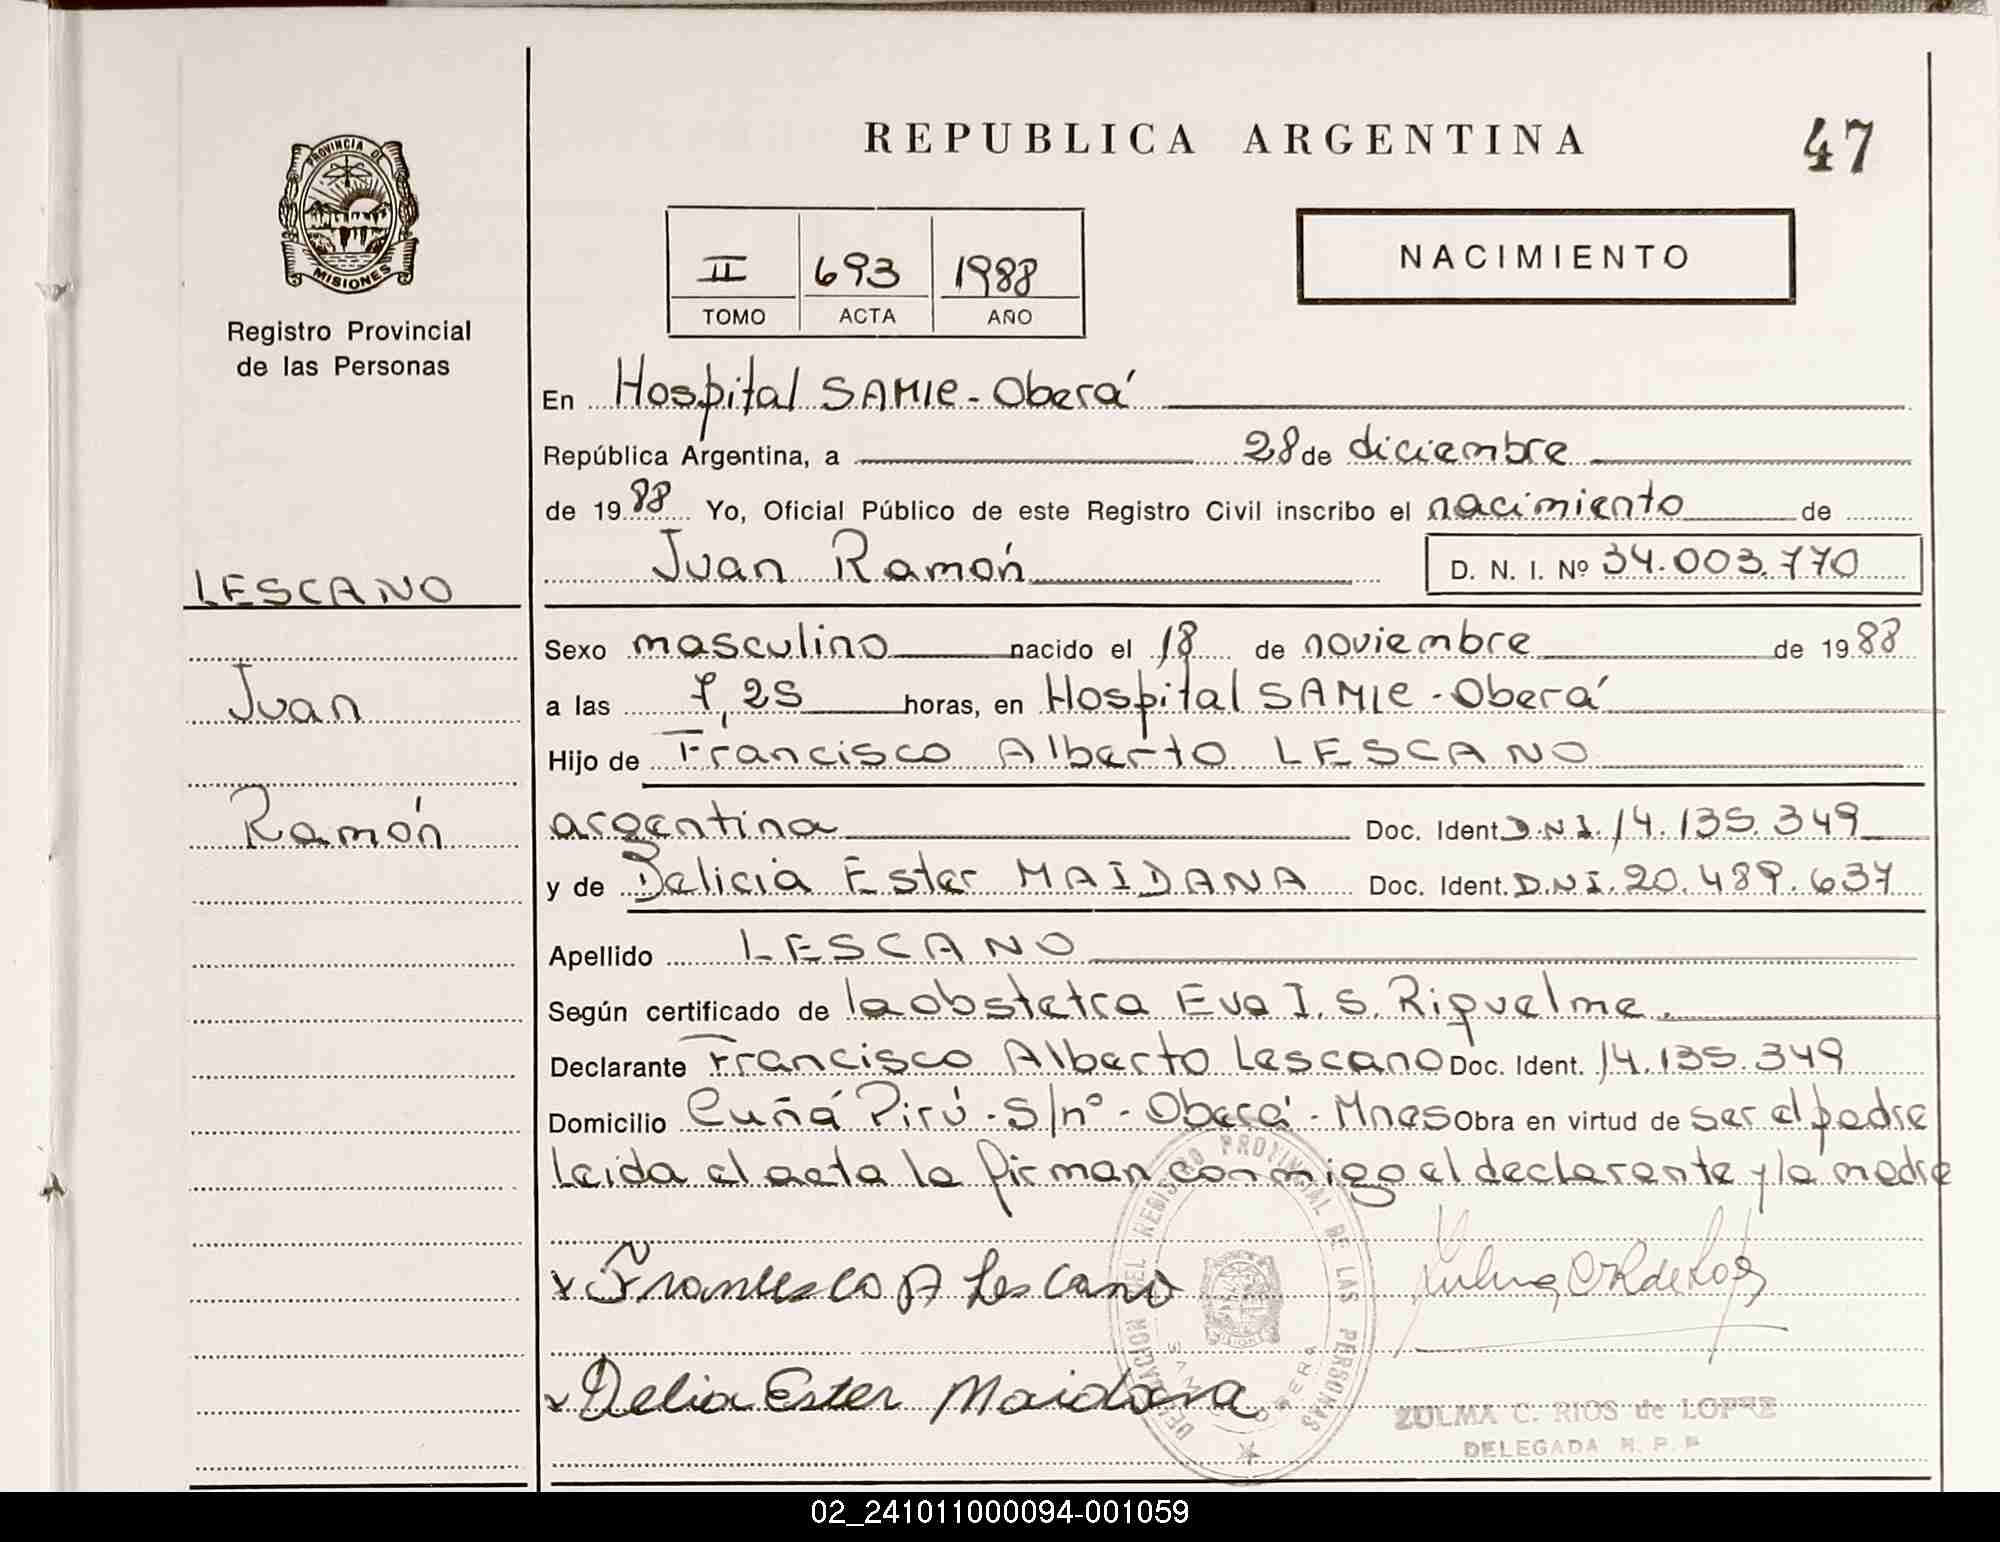 REPUBLICA ARGENTINA
47
PROVINCIA DE MISIONES
Registro Provincial
de las Personas
II 693 1988
TOMO ACTA AÑO
NACIMIENTO
En Hospital SAMIC - Oberá
República Argentina, a 28 de diciembre
de 1988 Yo, Oficial Público de este Registro Civil inscribo el nacimiento de
Juan Ramón D. N. I. Nº 34.003.770
LESCANO
Juan
Ramón
Sexo masculino nacido el 18 de noviembre de 1988
a las 7,25 horas, en Hospital SAMIC - Oberá
Hijo de Francisco Alberto LESCANO
argentina Doc. Ident. D.N.I. 14.135.349
y de Delicia Ester MAIDANA Doc. Ident. D.N.I. 20.489.637
Apellido LESCANO
Según certificado de la obstetra Eva I. S. Riquelme.
Declarante Francisco Alberto Lescano Doc. Ident. 14.135.349
Domicilio Cuñá Pirú - S/nº - Oberá - Mnes Obra en virtud de ser el padre
Leida el acta la firman conmigo el declarante y la madre
x Francisco A Lescano
x Delia Ester Maidana
DELEGACION DEL REGISTRO PROVINCIAL DE LAS PERSONAS
ZULMA C. RIOS de LOPEZ
DELEGADA R. P. P
02_241011000094-001059